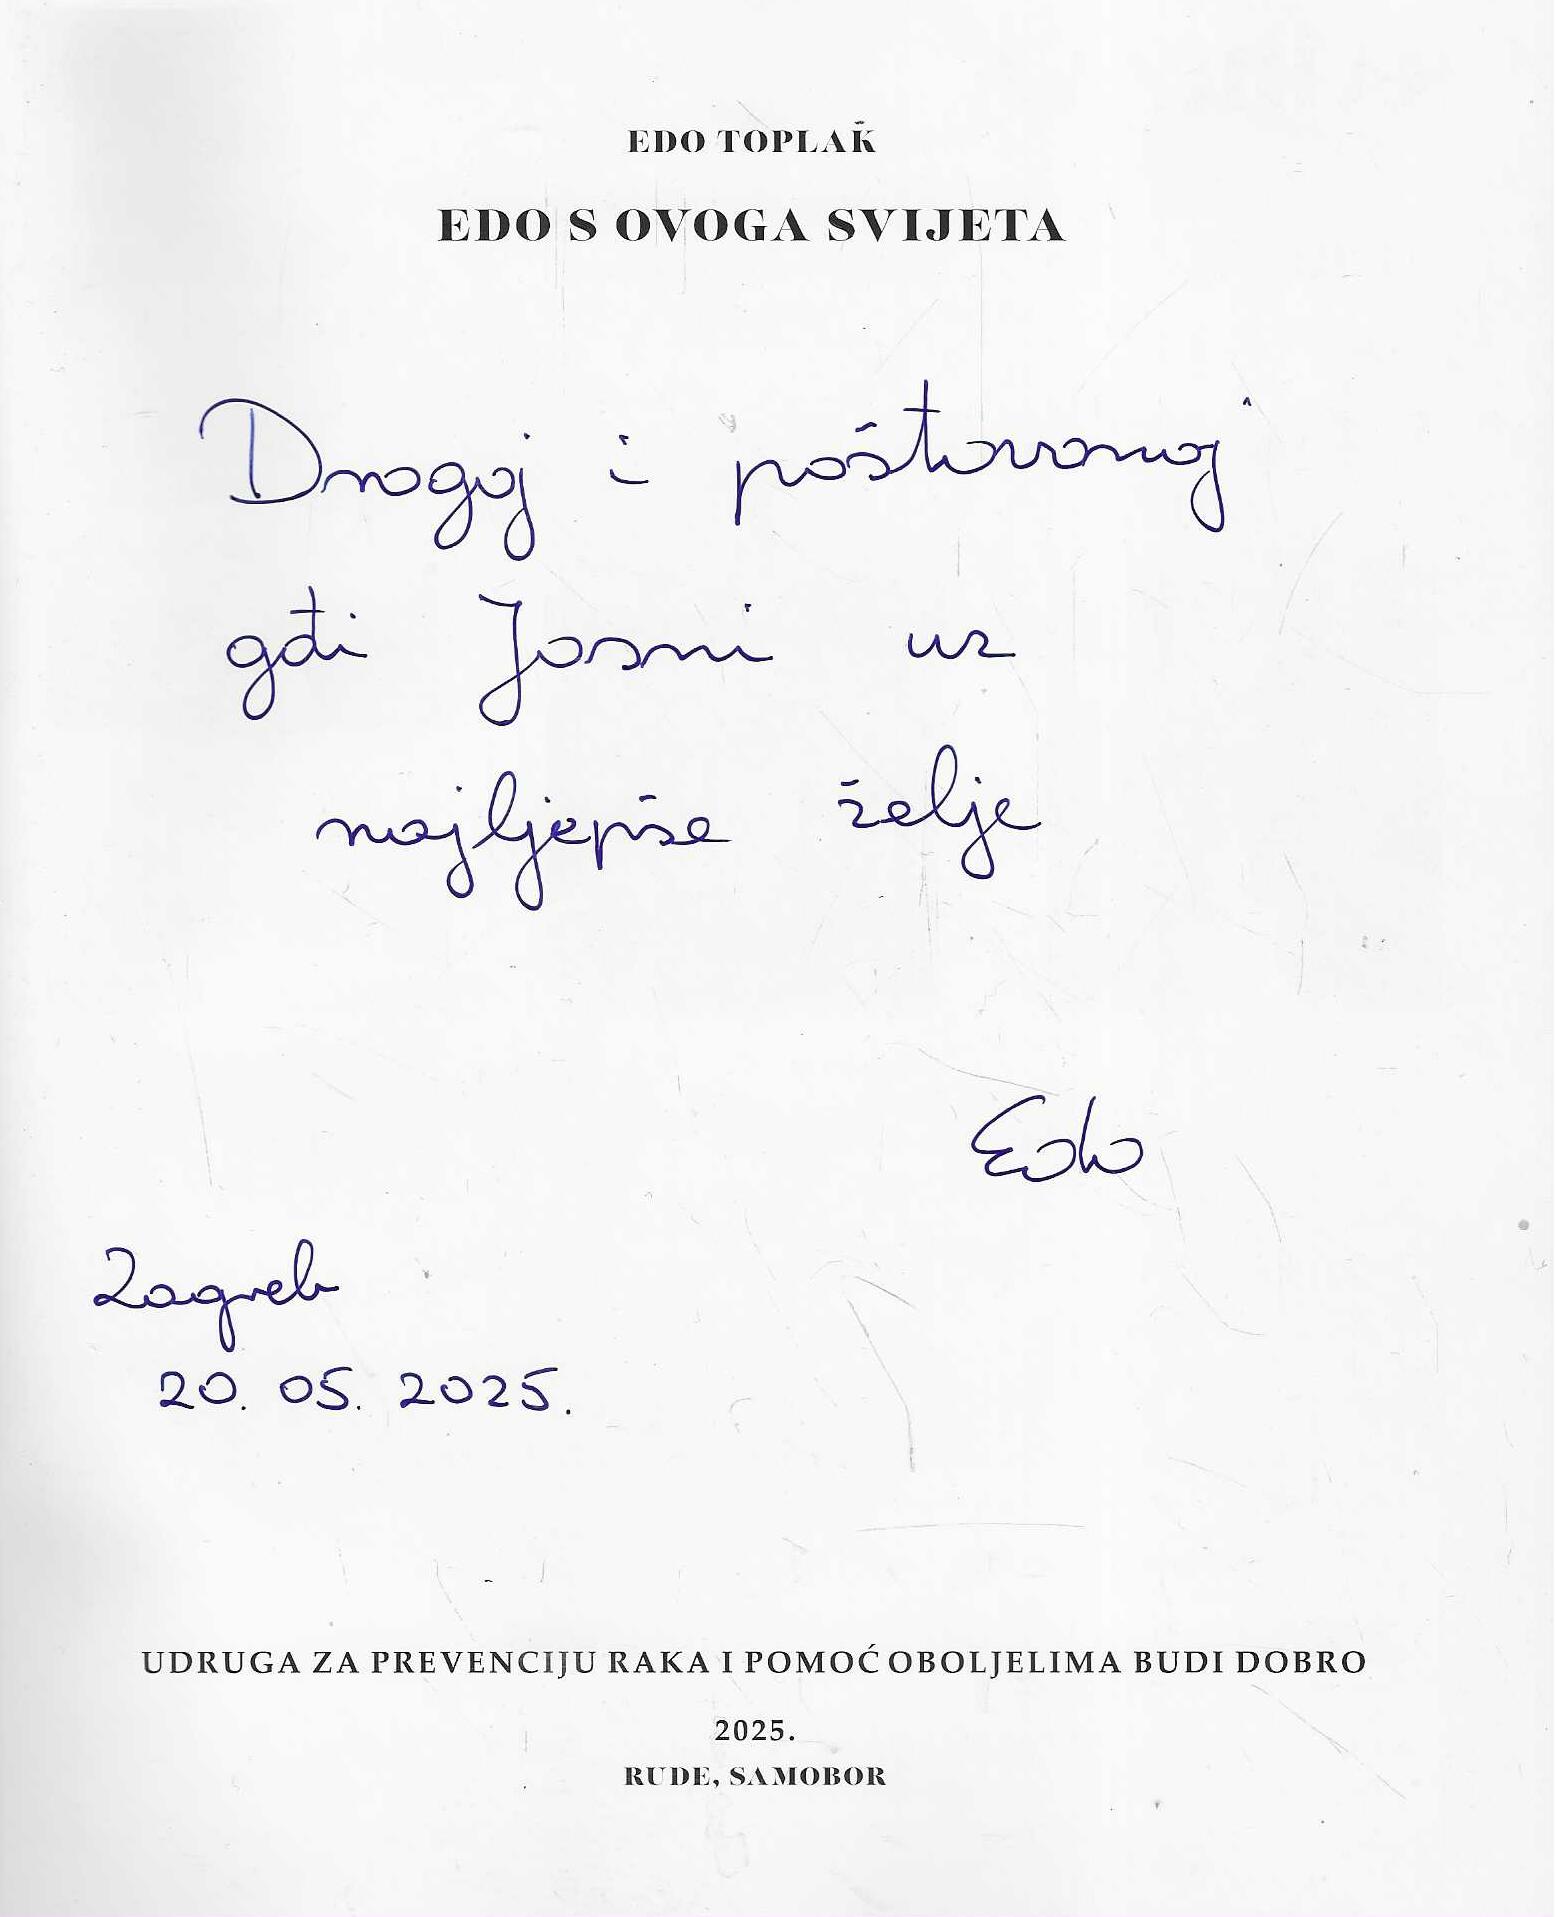 EDO TOPLAK
EDO S OVOGA SVIJETA
Dragoj i poštovanoj
gđi Jasni uz
najljepše želje
Edo
Zagreb
20. 05. 2025.
UDRUGA ZA PREVENCIJU RAKA I POMOĆ OBOLJELIMA BUDI DOBRO
2025.
RUDE, SAMOBOR